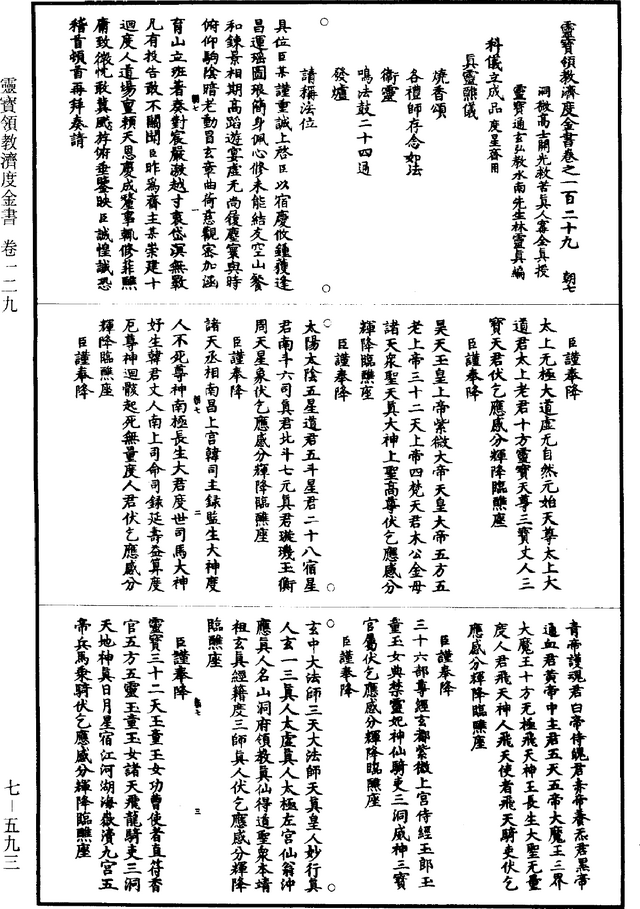 靈寶領教濟度金書卷之一百二十九 朝七
洞微高士開光救苦眞人甯全眞授
靈寶通玄弘教水南先生林靈眞編
科儀立成品 度星齋用
眞靈醮儀
燒香頌
各禮師存念如法
衛靈
鳴法鼓二十四通
發爐
請稱法位
具位臣某謹重誠上啓臣以宿慶攸鍾獲逢
昌運瑶圖琅簡身佩心修未能結友空山餐
和鍊景相期高蹈遊宴虛无尚復塵寰與時
俯仰駒陰暗老動冒玄章曲荷慈觀密加涵
育山立班著奏對宸嚴激越寸衷岱溟無斁
凡有投告敢不關聞臣昨爲齋主某崇建十
迴度人道場重頼天恩慶成鰲事輒修菲醮
庸致微忱敢冀飈斿俯垂鑒映臣誠惶誠恐
稽首頓首再拜奏請
臣謹奉降
太上无極大道虛无自然元始天尊太上大
道君太上老君十方靈寶天尊三寶丈人三
寶天君伏乞應感分輝降臨醮座
臣謹奉降
昊天玉皇上帝紫微大帝天皇大帝五方五
老上帝三十二天上帝四梵天君木公金母
諸天衆聖天眞大神上聖高尊伏乞應感分
輝降臨醮座
臣謹奉降
太陽太陰五星道君五斗星君二十八宿星
君南斗六司眞君北斗七元眞君璇璣玉衡
周天星象伏乞應感分輝降臨醮座
臣謹奉降
諸天丞相南昌上宮韓司主錄監生大神度
人不死尊神南極長生大君度世司馬大神
好生韓君丈人南上司命司錄延壽益算度
厄尊神迴骸起死無量度人君伏乞應感分
輝降臨醮座
臣謹奉降
青帝護魂君白帝侍魄君赤帝養炁君黑帝
通血君黃帝中主君五天五帝大魔王三界
大魔王十方无極飛天神王長生大聖无量
度人君飛天神人飛天使者飛天騎吏伏乞
應感分輝降臨醮座
臣謹奉降
三十六部尊經玄都紫微上宮侍經玉郎玉
童玉女典禁靈妃神仙騎吏三洞威神三寶
官屬伏乞應感分輝降臨醮座
臣謹奉降
玄中大法師三天大法師天眞皇人妙行眞
人玄一三眞人太虛眞人太極左宮仙翁沖
應眞人名山洞府領教眞仙得道聖衆本靖
祖玄眞經籍度三師眞人伏乞應感分輝降
臨醮座
臣謹奉降
靈寶三十二天玉童玉女功曹使者直符香
官五方五靈玉童玉女諸天飛龍騎吏三洞
天地神眞日月星宿江河湖海嶽瀆九宮五
帝兵馬乘騎伏乞應感分輝降臨醮座
靈寶領教濟度金書 卷一二九
七—五九三